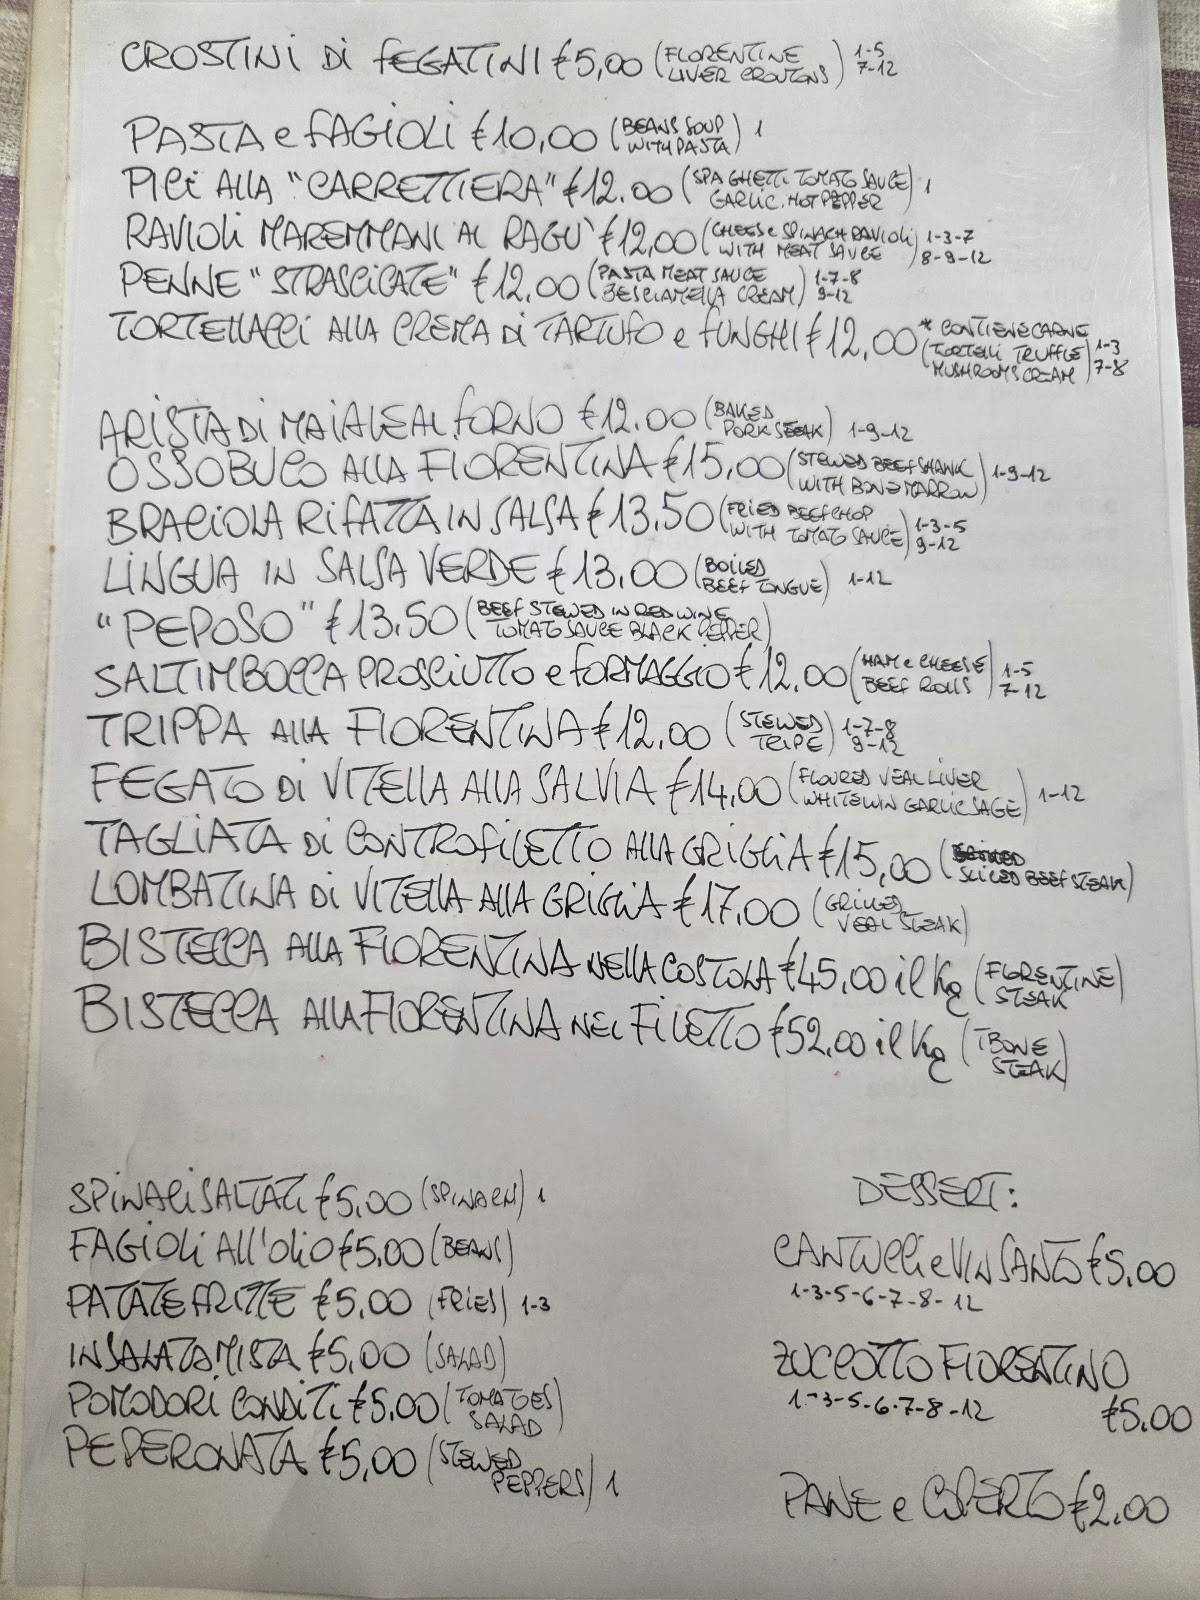 CROSTINI DI FEGATINI €5,00 (FLORENTINE LIVER CROUTONS) 1-5 7-12
PASTA e FAGIOLI €10,00 (BEANS SOUP WITH PASTA) 1
PICI ALLA "CARRETTIERA" €12.00 (SPAGHETTI TOMATO SAUCE GARLIC, HOT PEPPER) 1
RAVIOLI MAREMMANI AL RAGU' €12,00 (CHEESE SPINACH RAVIOLI WITH MEAT SAUCE) 1-3-7 8-9-12
PENNE "STRASCICATE" €12,00 (PASTA MEAT SAUCE BESCIAMELLA CREAM) 1-7-8 9-12
TORTELLACCI ALLA CREMA DI TARTUFO e FUNGHI €12,00 * CONTIENE CARNE (TORTELLI TRUFFLE MUSHROOMS CREAM) 1-3 7-8
ARISTA DI MAIALE AL FORNO €12.00 (BAKED PORK STEAK) 1-9-12
OSSOBUCO ALLA FIORENTINA €15,00 (STEWED BEEF SHANK WITH BONE MARROW) 1-9-12
BRACIOLA RIFATTA IN SALSA €13,50 (FRIED BEEF CHOP WITH TOMATO SAUCE) 1-3-5 9-12
LINGUA IN SALSA VERDE €13.00 (BOILED BEEF TONGUE) 1-12
"PEPOSO" €13,50 (BEEF STEWED IN RED WINE TOMATO SAUCE BLACK PEPPER)
SALTIMBOCCA PROSCIUTTO e FORMAGGIO €12,00 (HAM e CHEESE BEEF ROLLS) 1-5 7-12
TRIPPA ALLA FIORENTINA €12,00 (STEWED TRIPE) 1-7-8 9-12
FEGATO DI VITELLA ALLA SALVIA €14,00 (FLOURED VEAL LIVER WHITE WIN GARLIC SAGE) 1-12
TAGLIATA DI CONTROFILETTO ALLA GRIGLIA €15,00 (SLICED BEEF STEAK)
LOMBATINA DI VITELLA ALLA GRIGLIA €17,00 (GRILLED VEAL STEAK)
BISTECCA ALLA FIORENTINA NELLA COSTOLA €45,00 il Kg (FLORENTINE STEAK)
BISTECCA ALLA FIORENTINA NEL FILETTO €52,00 il Kg (TBONE STEAK)
SPINACI SALTATI €5,00 (SPINACH) 1
FAGIOLI ALL'OLIO €5,00 (BEANS)
PATATE FRITTE €5,00 (FRIES) 1-3
INSALATA MISTA €5,00 (SALAD)
POMODORI CONDITI €5,00 (TOMATOES SALAD)
PEPERONATA €5,00 (STEWED PEPPERS) 1
DESSERT:
CANTUCCI e VIN SANTO €5,00
1-3-5-6-7-8-12
ZUCCOTTO FIORENTINO
1-3-5-6-7-8-12 €5.00
PANE e COPERTO €2,00